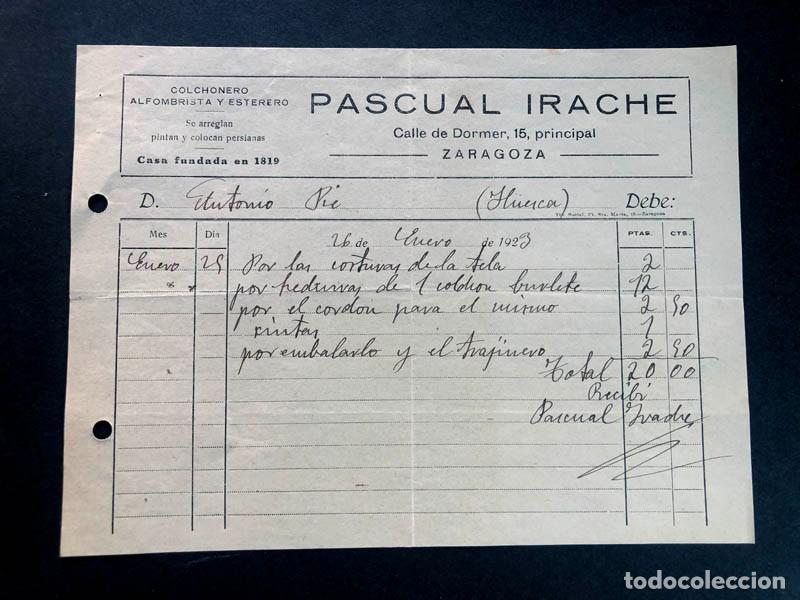 COLCHONERO
ALFOMBRISTA Y ESTERERO
Se arreglan
pintan y colocan persianas
Casa fundada en 1819
PASCUAL IRACHE
Calle de Dormer, 15, principal
ZARAGOZA
D. Antonio Pie (Huesca) Debe:
Mes Dia 26 de Enero de 1923 PTAS. CTS.
Enero 25 Por las costuras de la tela 2
" " por hechuras de 1 colchon burlete 12
por el cordon para el mismo 2 50
cintas 1
por embalarlo y el trajinero 2 50
Total 20 00
Recibi
Pascual Irache
todocoleccion